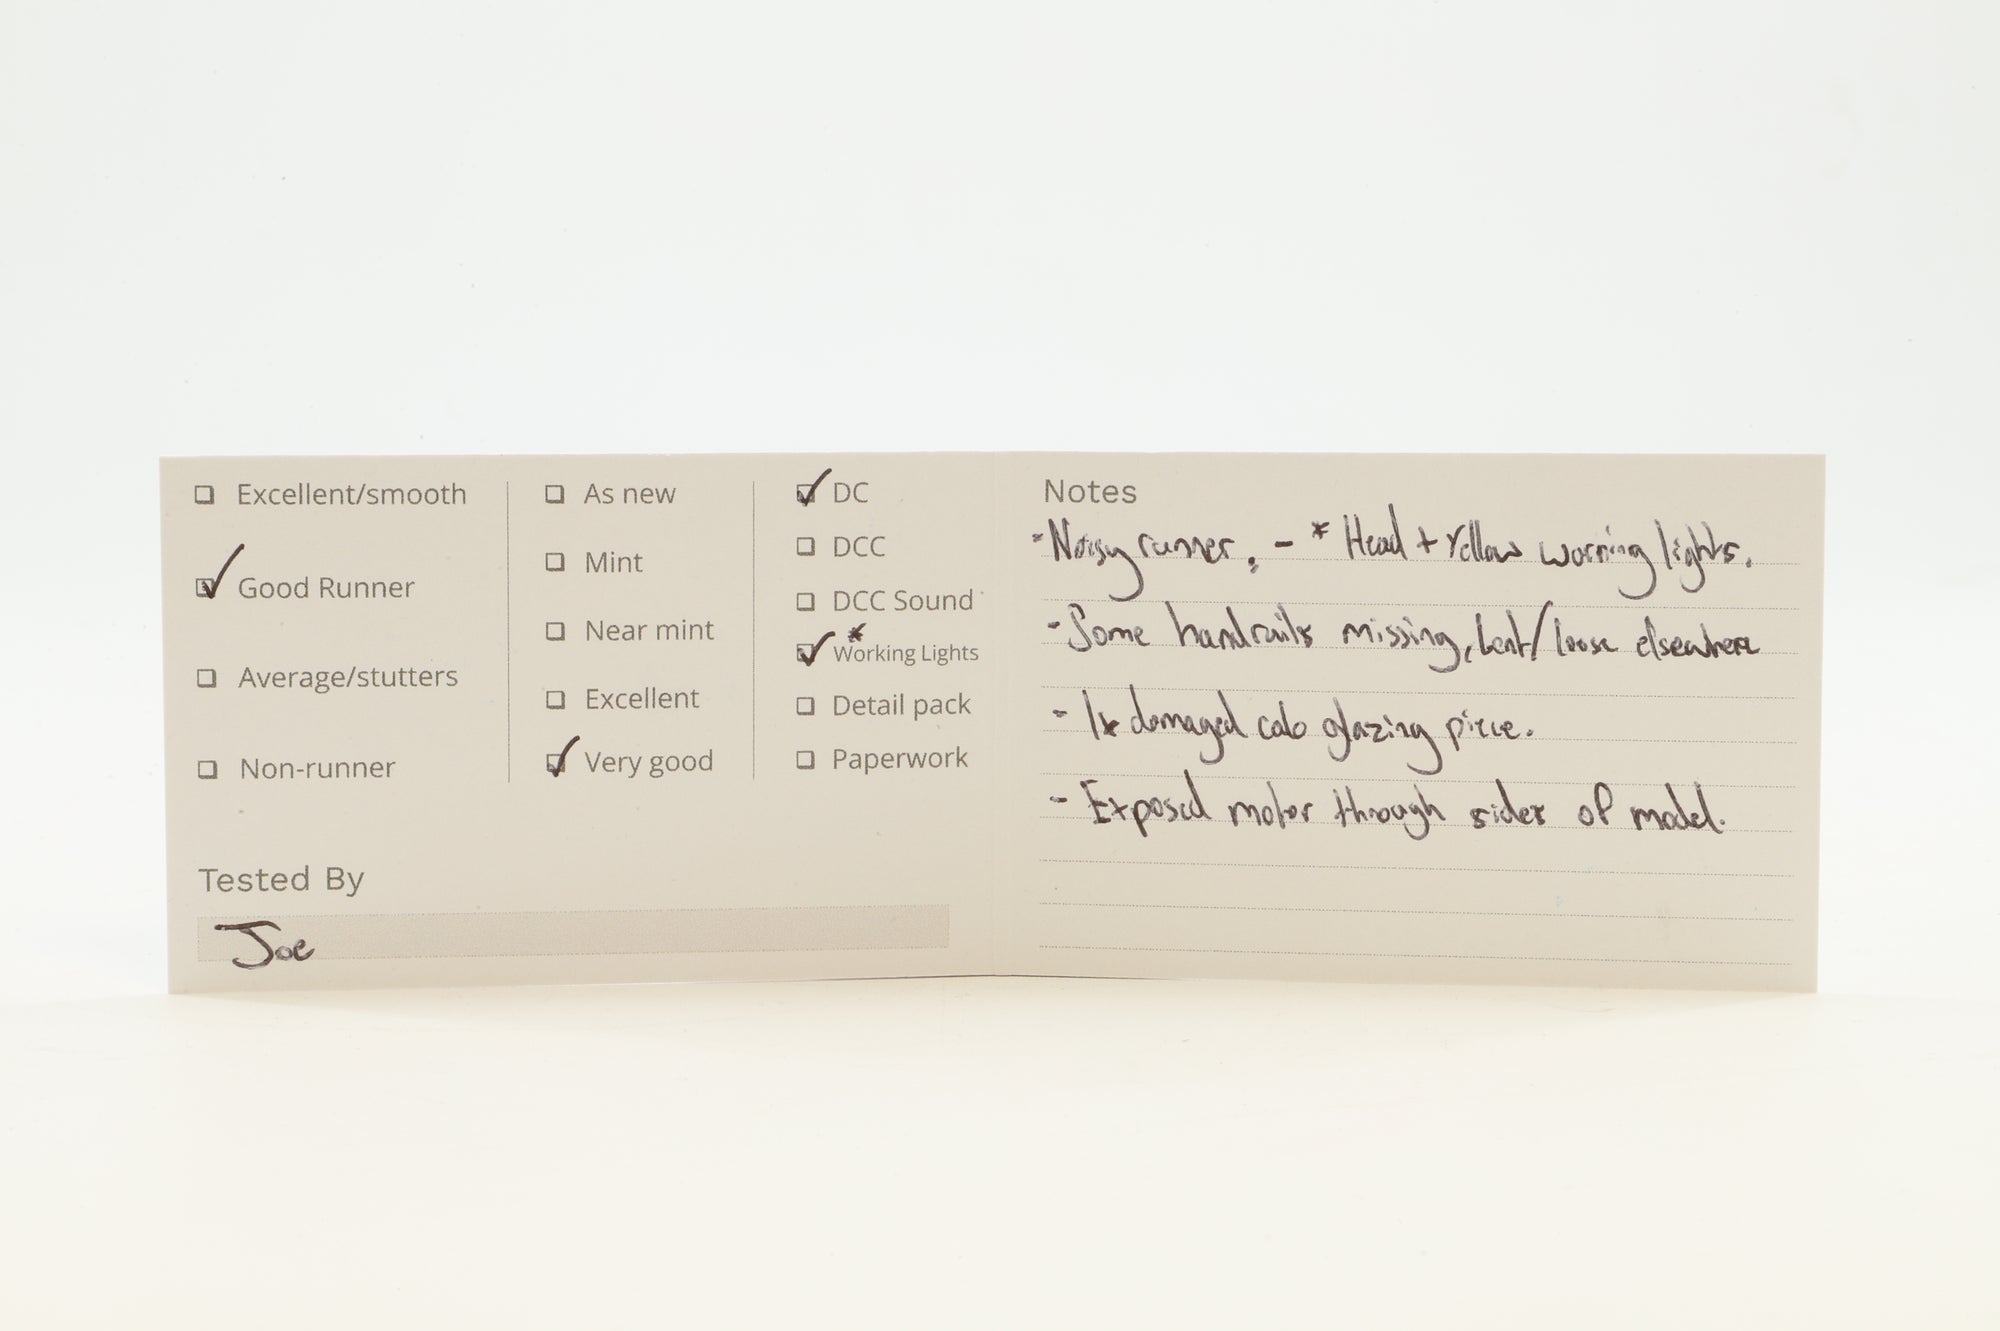 Excellent/smooth
Good Runner
Average/stutters
Non-runner
As new
Mint
Near mint
Excellent
Very good
DC
DCC
DCC Sound
*
Working Lights
Detail pack
Paperwork
Tested By
Joe
Notes
- Noisy runner. - * Head + Yellow warning lights.
- Some handrails missing, bent/loose elsewhere
- 1x damaged cab glazing piece.
- Exposed motor through sides of model.